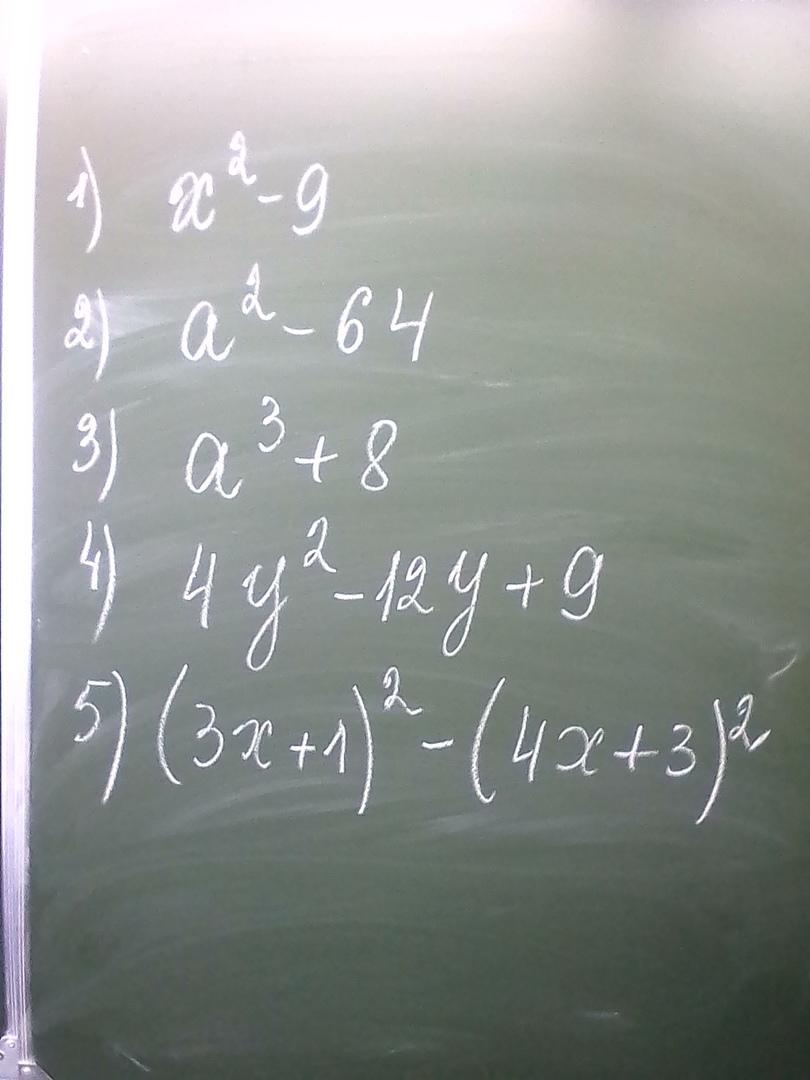 1) x² - 9
2) a² - 64
3) a³ + 8
4) 4y² - 12y + 9
5) (3x+1)² - (4x+3)²